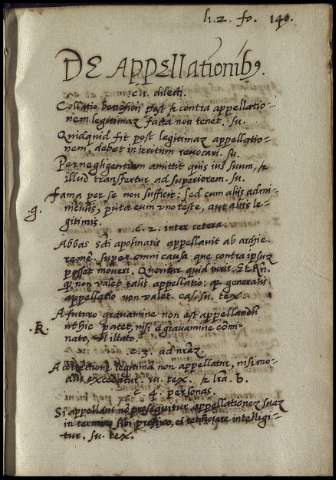 li. 2. fo. 140.
DE Appellationib9.
c. 1. dilecti.
Collatio beneficii post se contra appellatio-
nem legitimam facta non tenet. su.
Quidquid fit post legitimam appellatio-
nem, debet in irritum revocari. su.
Per negligentiam amittit quis ius suum, et
illud transfertur ad superiorem. su.
Fama per se non sufficit: sed cum aliis admi-
niculis, puta cum uno teste, aut aliis le-
gitimis
g.
c. 2. inter cetera.
Abbas sancti apolinaris appellavit ab archie.
super omni causa que contra ipsum
posset moveri. Queritur quid iuris.
non valet talis appellatio: generalis
appellatio non valet. casi. su. tex.
A futuro gravamine non est appellandum
ut hic patet, nisi gravamine comi-
nato, vel illato.
R.
c. 3. ad
A correctione legitima non appellatur, nisi mo-
excedatur. in. tex. lra. b.
c. 4. personas.
Si appellans non prosequitur appellationem suam
in termino sibi, et renuntiare intelligi-
tur. su. tex.